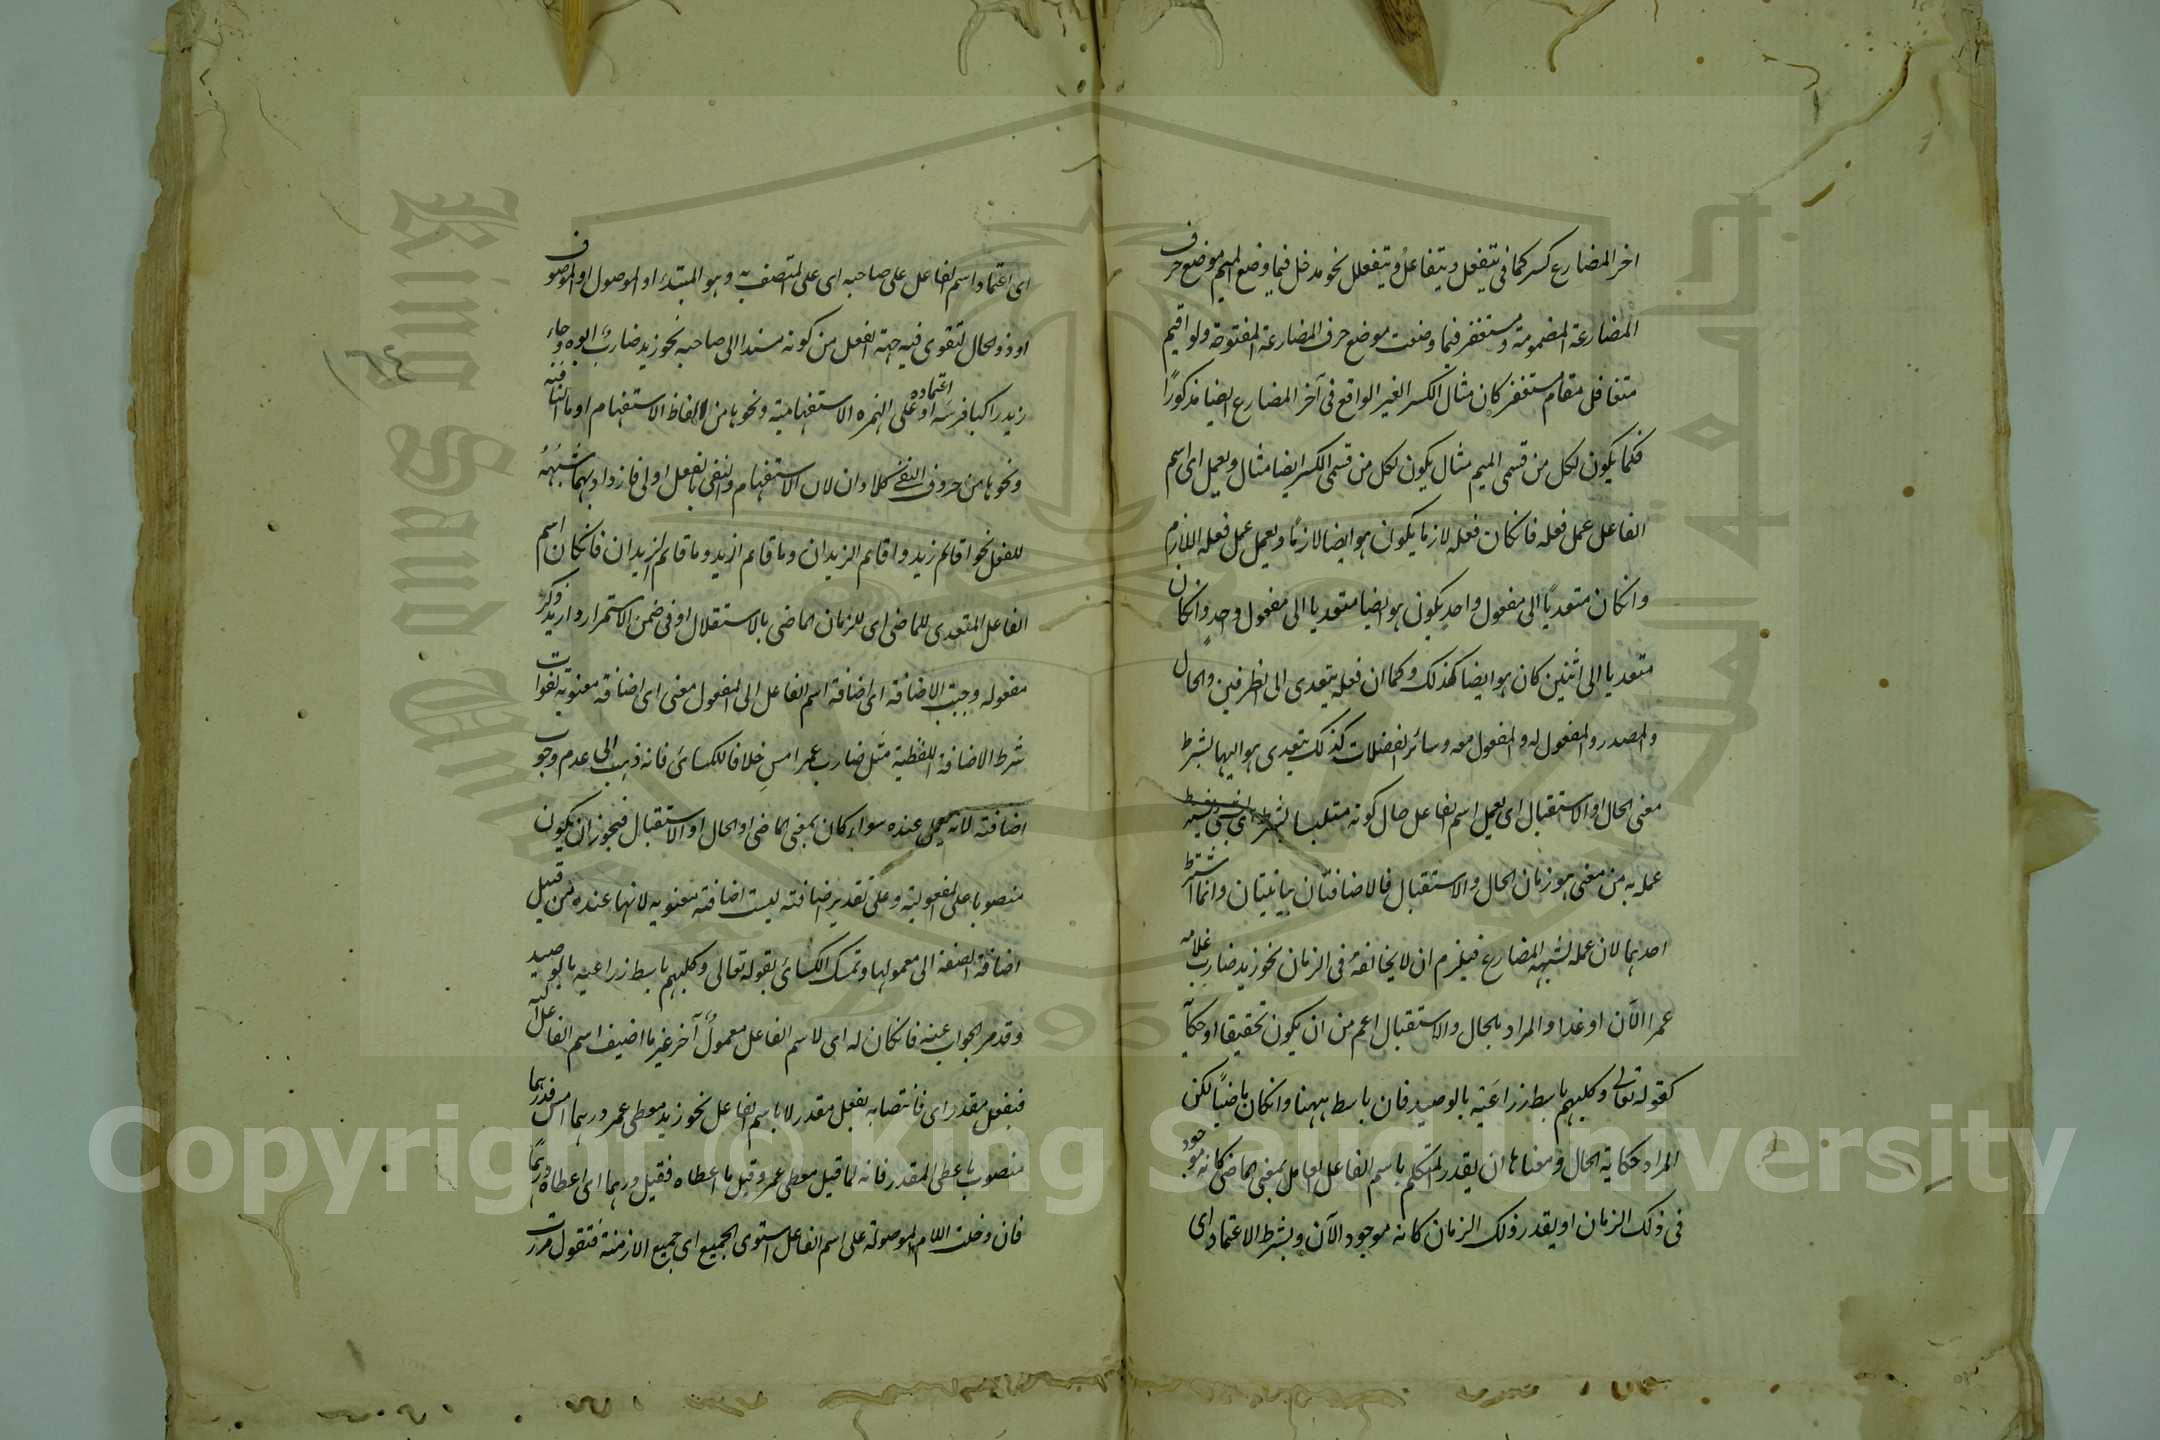 اخر المضارع كسر كما فى يتفعل ويتفاعل ويتفعلل نحو مدخل فيما وضع الميم موضع حرف
المضارعة المضمومة ومستغفر فيما وضعت موضع حرف المضارعة المفتوحة ولو اقيم
متغافل مقام مستغفر كان مثال الكسر الغير الواقع فى آخر المضارع ايضا مذكورًا
فكما يكون لكل من قسمى الميم مثال يكون لكل من قسمى الكسر ايضا مثال ويعمل اى اسم
الفاعل عمل فعله فانكان فعله لازما يكون هو ايضا لازمًا ويعمل عمل فعله اللازم
وانكان متعديًا الى مفعول واحد يكون هو ايضا متعديا الى مفعول واحدٍ وانكان
متعديا الى اثنين كان هو ايضا كذلك وكما ان فعله يتعدى الى الظرفين والحال
والمصدر والمفعول له والمفعول معه وسائر الفضلات كذلك يتعدى هو اليها بشرط
معنى الحال او الاستقبال اى يعمل اسم الفاعل حال كونه متلبسا بشرط
عمله به من معنى هو زمان الحال والاستقبال فالاضافتان بيانيتان وانما اشترط
احدهما لان عمله لشبهه المضارع فيلزم ان لا يخالفهُ فى الزمان نحو زيد ضاربٌ غلامه
عمرا الآن او غدا والمراد بالحال والاستقبال اعم من ان يكون تحقيقا او حكاية
كقوله تعالى وكلبهم باسط ذراعيه بالوصيد فان باسط ههنا وانكان ماضيًا لكن
المراد حكاية الحال ومعناها ان يقدر المتكلم باسم الفاعل العامل بمعنى الماضى كانه موجود
فى ذلك الزمان او يقدر ذلك الزمان كانه موجود الآن وبشرط الاعتماد اى
اى اعتماد اسم الفاعل على صاحبه اى على المتصف به وهو المبتدء او الموصول او الموصوف
او ذو الحال لتقوى فيه جهة الفعل من كونه مسندا الى صاحبه نحو زيد ضاربٌ ابوه وجاء
زيد راكبا فرسه او اعتماده على الهمزه الاستفهامية ونحوها من الفاظ الاستفهام او ما النافية
ونحوها من حروف النفى كلا وان لان الاستفهام والنفى بالفعل اولى فازداد بهما شبهه
للفعل نحو اقائم زيد واقائم الزيدان وما قائم الزيد وما قائم الزيدان فانكان اسم
الفاعل المتعدى للماضى اى للزمان الماضى بالاستقلال او فى ضمن الاستمرار واريد ذكر
مفعوله وجبت الاضافة اى اضافة اسم الفاعل الى المفعول معنى اى اضافة معنوية لفوات
شرط الاضافة اللفظية مثل ضارب عمرا امسِ خلافا للكسائى فانه ذهب الى عدم وجوب
اضافته لانه يعمل عنده سواء كان بمعنى الماضى او الحال او الاستقبال فيجوز ان يكون
منصوبا على المفعولية وعلى تقدير اضافته ليست اضافته معنوية لانها عنده من قبيل
اضافة الصفة الى معمولها وتمسك الكسائى بقوله تعالى وكلبهم باسط ذراعيه بالوصيد
وقد مر الجواب عنه فانكان له اى لاسم الفاعل معمولٌ آخر غير ما اضيف اسم الفاعل اليه
فبفعل مقدر اى فانتصابه بفعل مقدر لا باسم الفاعل نحو زيد معطى عمر درهما امس فدرهما
منصوب باعطى المقدر فانه لما قيل معطى عمر وقيل ما اعطاه فقيل درهما اى اعطاه درهمًا
فان دخلت اللام الموصولة على اسم الفاعل استوى الجميع اى جميع الازمنة فتقول مررت
١٦٤
Copyright © King Saud University